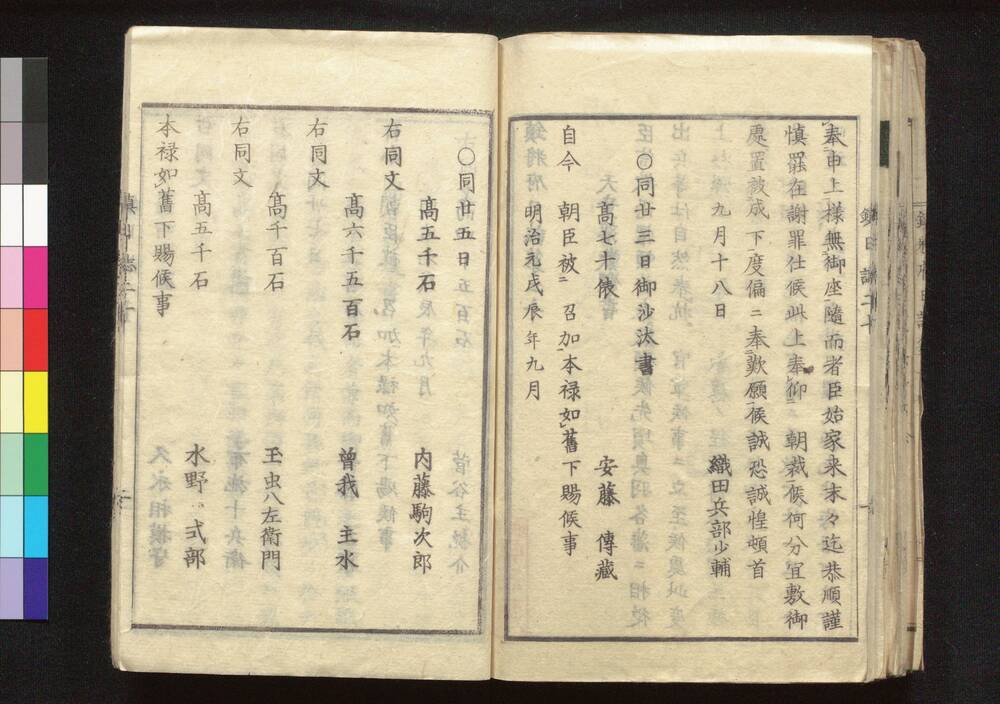 奉申上様無御座隨而者臣始家来末々迄恭順謹
慎罷在謝罪仕候此上奉仰朝裁候何分宜敷御
處置被成下度偏ニ奉歎願候誠恐誠惶頓首
九月十八日 織田兵部少輔
〇同廿三日御沙汰書
高七十俵 安藤傳藏
自今朝臣被ニ召加本禄如舊下賜候事
明治元戊辰年九月
〇同廿五日
高五千石 内藤駒次郎
右同文
高六千五百石 曾我主水
右同文
高千百石 玉虫八左衛門
右同文
高五千石 水野式部
本禄如舊下賜候事